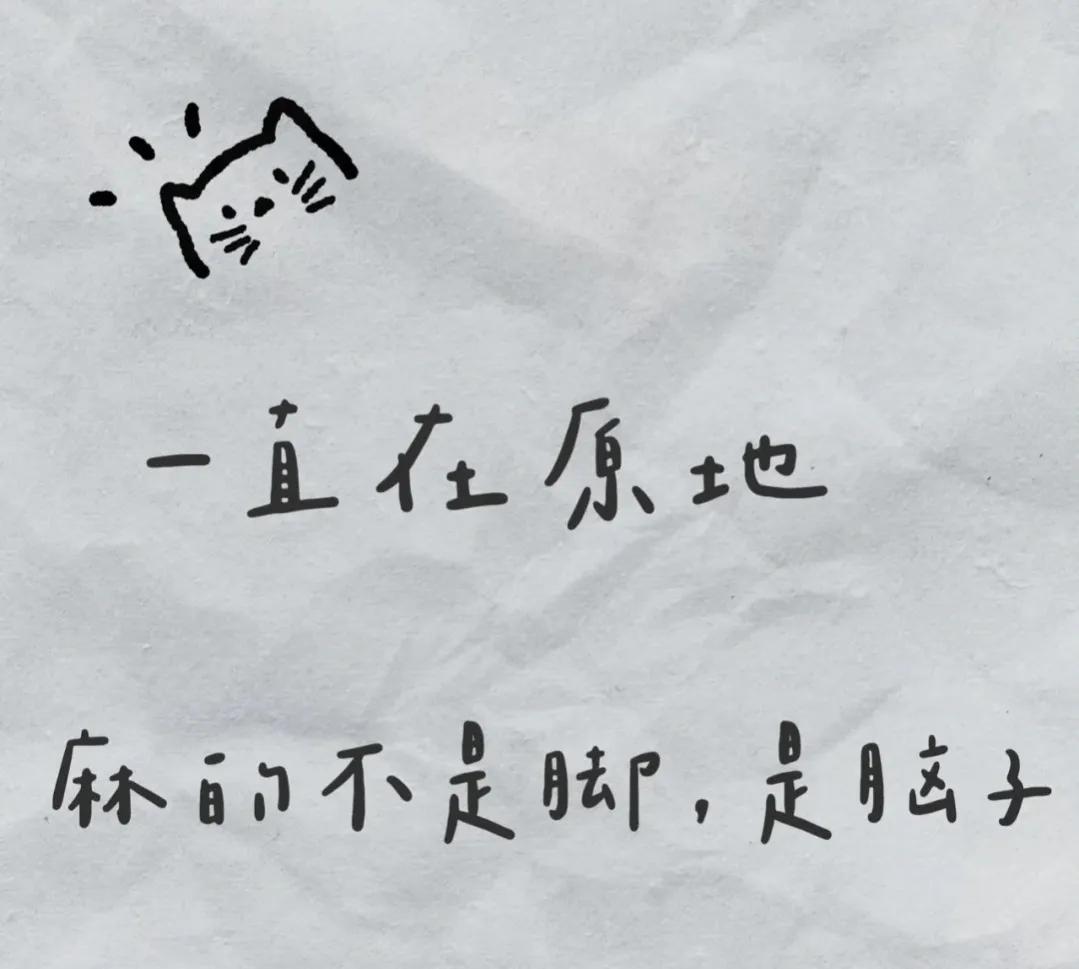 一直在原地
麻的不是脚，是脑子